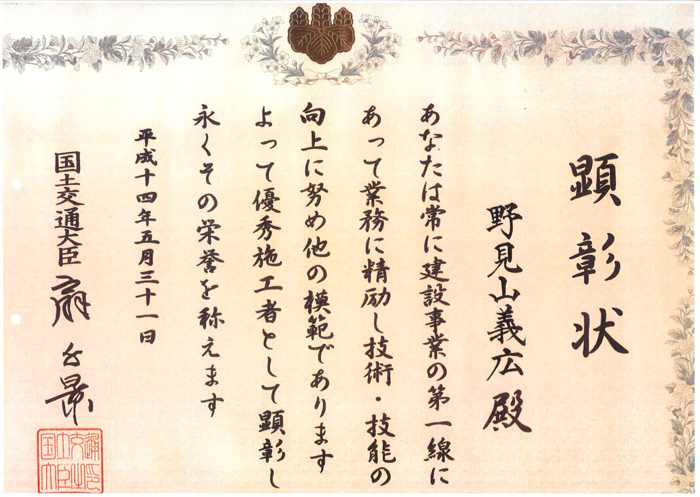 顕彰状
野見山義広殿
あなたは常に建設事業の第一線に
あって業務に精励し技術・技能の
向上に努め他の模範であります
よって優秀施工者として顕彰し
永くその栄誉を称えます
平成十四年五月三十一日
国土交通大臣 扇千景
国土交通大臣之印